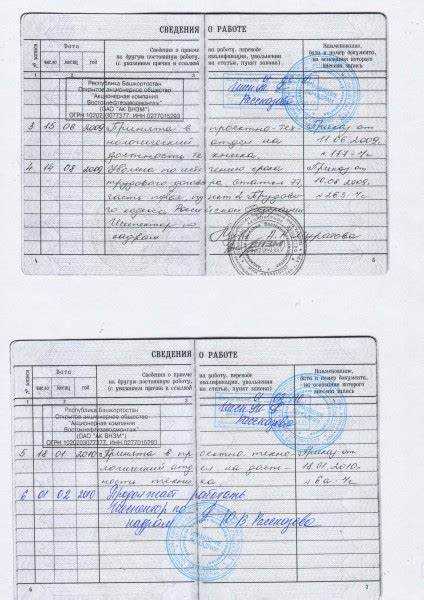 СВЕДЕНИЯ О РАБОТЕ
№ записи
Дата
Сведения о приеме на работу, переводе
на другую постоянную работу, квалификации, увольнении
(с указанием причин и ссылкой на статью, пункт закона)
Наименование,
дата и номер документа,
на основании которого
внесена запись
число месяц год
1 2 3 4
Республика Башкортостан
Открытое акционерное общество
Акционерная компания
Востокнефтезаводмонтаж
(ОАО "АК ВНЗМ")
ОГРН 1020203077377, ИНН 0277015293
Рассказова
3 15 06 2009 Принята в проектно-тех- Приказ от
нологический отдел на 11.06.2009.
должность техника.
4 14 08 2009 Уволена по истечению срока Приказ от
трудового договора, статья 77, 10.08.2009.
часть первая, пункт 2 Трудово-
го кодекса Российской Федерации
Инспектор по
кадрам
4 5
СВЕДЕНИЯ О РАБОТЕ
№ записи
Дата
Сведения о приеме на работу, переводе
на другую постоянную работу, квалификации, увольнении
(с указанием причин и ссылкой на статью, пункт закона)
Наименование,
дата и номер документа,
на основании которого
внесена запись
число месяц год
1 2 3 4
Республика Башкортостан
Открытое акционерное общество
Акционерная компания
Востокнефтезаводмонтаж
(ОАО "АК ВНЗМ")
ОГРН 1020203077377, ИНН 0277015293
Рассказова
5 18 01 2010 Принята в проектно-техно- Приказ от
логический отдел на долж- 18.01.2010.
ность техника.
6 01 02 2010 Продолжает работать
Инспектор по
кадрам Ю.В. Рассказова
6 7